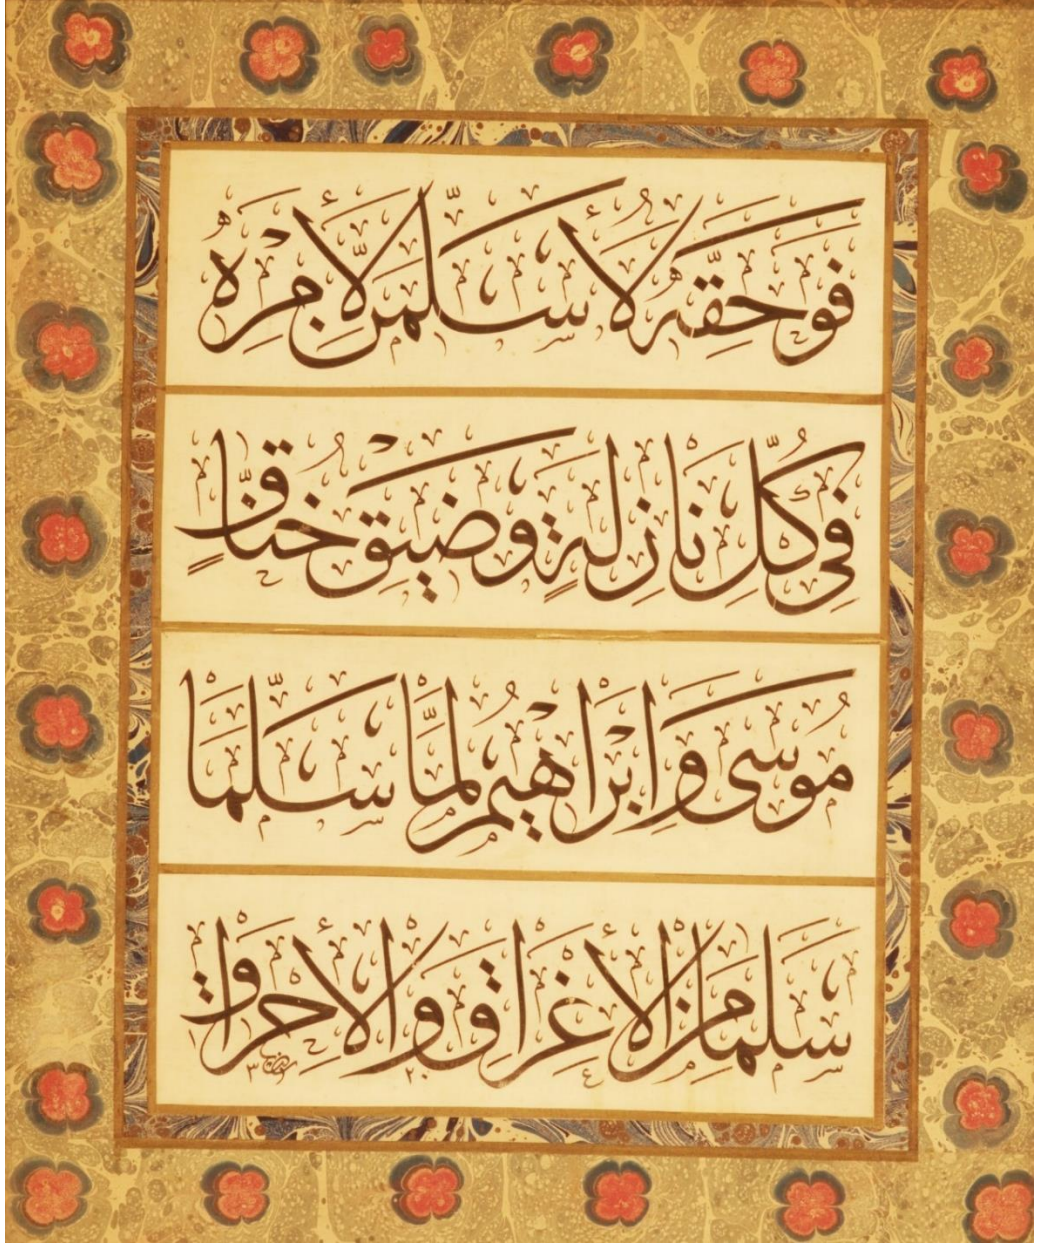 فَوَحَقِّهِ لَأُسَلِّمَنَّ لِأَمْرِهِ
فِي كُلِّ نَازِلَةٍ وَضِيقِ خِنَاقٍ
مُوسَى وَإِبْرَاهِيمُ لَمَّا سَلَّمَا
سَلِمَا مِنَ الْأَغْرَاقِ وَالْأَحْرَاقِ